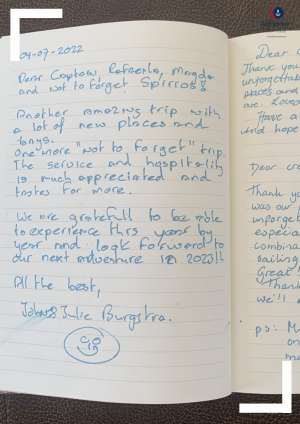 04-07-2022
Dear Captain, Roberto, Magda
and not to forget Spirros
Another amazing trip with
a lot of new places and
bays.
One more "not to forget" trip
The service and hospitality
is much appreciated and
tastes for more.
We are gratefull to be able
to experience this year by
year and look forward to
our next adventure in 2023!!
All the best,
Julie Burgstra.
Dear
Thank you
unforgetta
places and
are. Loved
Have a
and hope
Dear cre
Thank yo
was our
unforget
especia
combina
sailing
Great
Thank
we'll
ps: